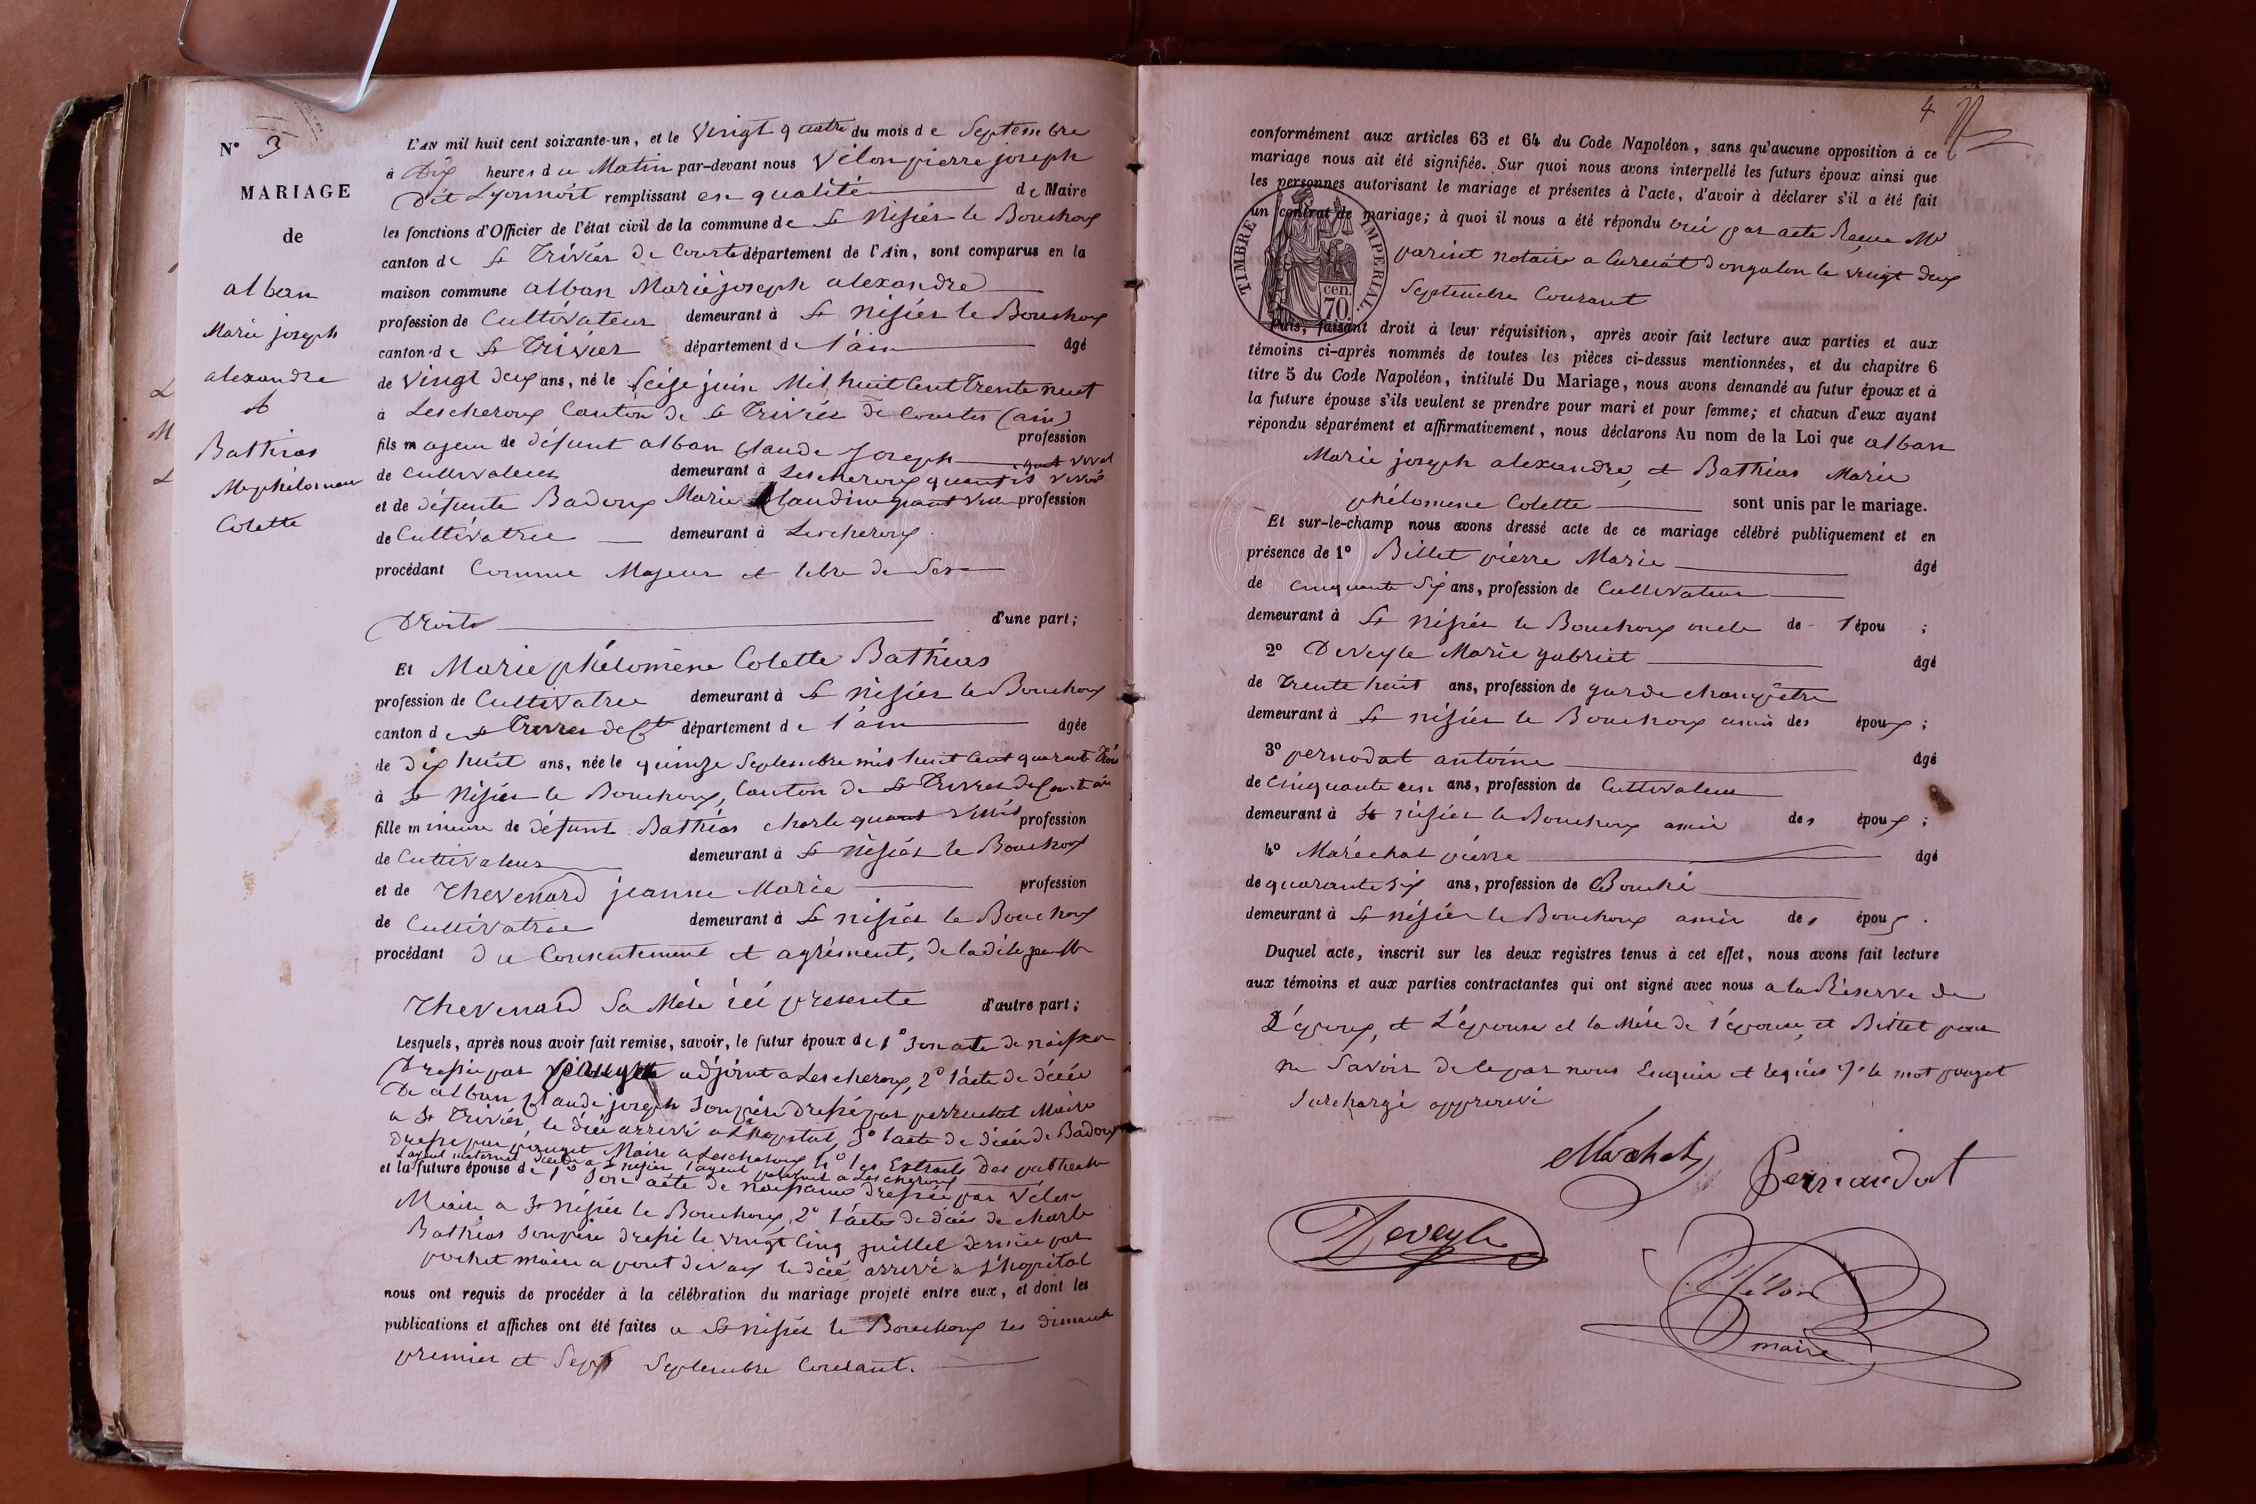 N° 3
MARIAGE
de
alban
Marie joseph
alexandre
et
Bathias
Mie phélomene
Colette
L'AN mil huit cent soixante-un, et le Vingt quatre du mois de Septembre
à Dix heures du Matin par-devant nous Vélon pierre joseph
Dit Lyonnoit remplissant en qualité de Maire
les fonctions d'Officier de l'état civil de la commune de St Nisier le Bouchoux
canton de St Trivier de Courte département de l'Ain, sont comparus en la
maison commune alban Marie joseph alexandre
profession de Cultivateur demeurant à St Nisier le Bouchoux
canton de St Trivier département de l'ain âgé
de Vingt deux ans, né le Seize juin Mil huit Cent Trente neuf
à Lescheroux Canton de St Trivier de Courtes (ain)
fils majeur de défunt alban Claude Joseph profession
de Cultivateur demeurant à Lescheroux quant vivait
et de défunte Badoux Marie Claudine quant vive profession
de Cultivatrice demeurant à Lescheroux
procédant Comme Majeur et libre de Ses
Droits d'une part;
Et Marie phélomène Colette Bathias
profession de Cultivatrice demeurant à St Nisier le Bouchoux
canton de St Trivier de Ct département de l'ain âgée
de dix huit ans, née le quinze Septembre mil huit Cent quarante trois
à St Nisier le Bouchoux, Canton de St Trivier de Court ain
fille mineure de défunt Bathias charle quant vivait profession
de Cultivateur demeurant à St Nisier le Bouchoux
et de Thevenard jeanne Marie profession
de Cultivatrice demeurant à St nisier le Bouchoux
procédant du Consentement et agrément, de ladite
Thevenard Sa Mère ici presente d'autre part;
Lesquels, après nous avoir fait remise, savoir, le futur époux de 1° Son acte de naissance
Dressé par pouget adjoint a Lescheroux, 2° l'acte de décès
De alban Claude joseph Son père dressé par perruchet Maire
a St Trivier, le décé arrivé a l'hopital, 3° l'acte de décès de Badoux
Dressé par pouget Maire a Lescheroux 4° les Extraits des
et la future épouse de 1° Son acte de naissance dressé par Vélon
Maire a St Nisier le Bouchoux, 2° l'acte de décès de charle
Bathias Son père dressé le vingt Cinq juillet dernier par
pochet maire a pont de vaux le décé arrivé a l'hopital
nous ont requis de procéder à la célébration du mariage projeté entre eux, et dont les
publications et affiches ont été faites a St nisier le Bouchoux les dimanche
premier et Sept Septembre Courant.
4
conformément aux articles 63 et 64 du Code Napoléon, sans qu'aucune opposition à ce
mariage nous ait été signifiée. Sur quoi nous avons interpellé les futurs époux ainsi que
les personnes autorisant le mariage et présentes à l'acte, d'avoir à déclarer s'il a été fait
un contrat de mariage; à quoi il nous a été répondu oui par acte Reçue Me
parint notaire a Curciat Dongalon le Vingt deux
Septembre Courant
TIMBRE IMPERIAL.
cen.
70.
Puis, faisant droit à leur réquisition, après avoir fait lecture aux parties et aux
témoins ci-après nommés de toutes les pièces ci-dessus mentionnées, et du chapitre 6
titre 5 du Code Napoléon, intitulé Du Mariage, nous avons demandé au futur époux et à
la future épouse s'ils veulent se prendre pour mari et pour femme; et chacun d'eux ayant
répondu séparément et affirmativement, nous déclarons Au nom de la Loi que alban
Marie joseph alexandre, et Bathias Marie
phélomene Colette sont unis par le mariage.
Et sur-le-champ nous avons dressé acte de ce mariage célébré publiquement et en
présence de 1° Billet pierre Marie âgé
de Cinquante Six ans, profession de Cultivateur
demeurant à St Nisier le Bouchoux oncle de l'épou ;
2° Deveyle Marie gabriel âgé
de Trente huit ans, profession de garde champêtre
demeurant à St nisier le Bouchoux amis des époux ;
3° pernodat antoine âgé
de Cinquante un ans, profession de Cultivateur
demeurant à St nisier le Bouchoux amis des époux ;
4° Maréchal pierre âgé
de quarante six ans, profession de Bouché
demeurant à St nisier le Bouchoux amis des époux .
Duquel acte, inscrit sur les deux registres tenus à cet effet, nous avons fait lecture
aux témoins et aux parties contractantes qui ont signé avec nous a la Réserve de
L'époux, et L'épouse et la Mère de l'épouse, et Billet pour
ne Savoir de le par nous Enquis et requis le mot pouget
Surchargé approuvé
Deveyle
Vélon
maire